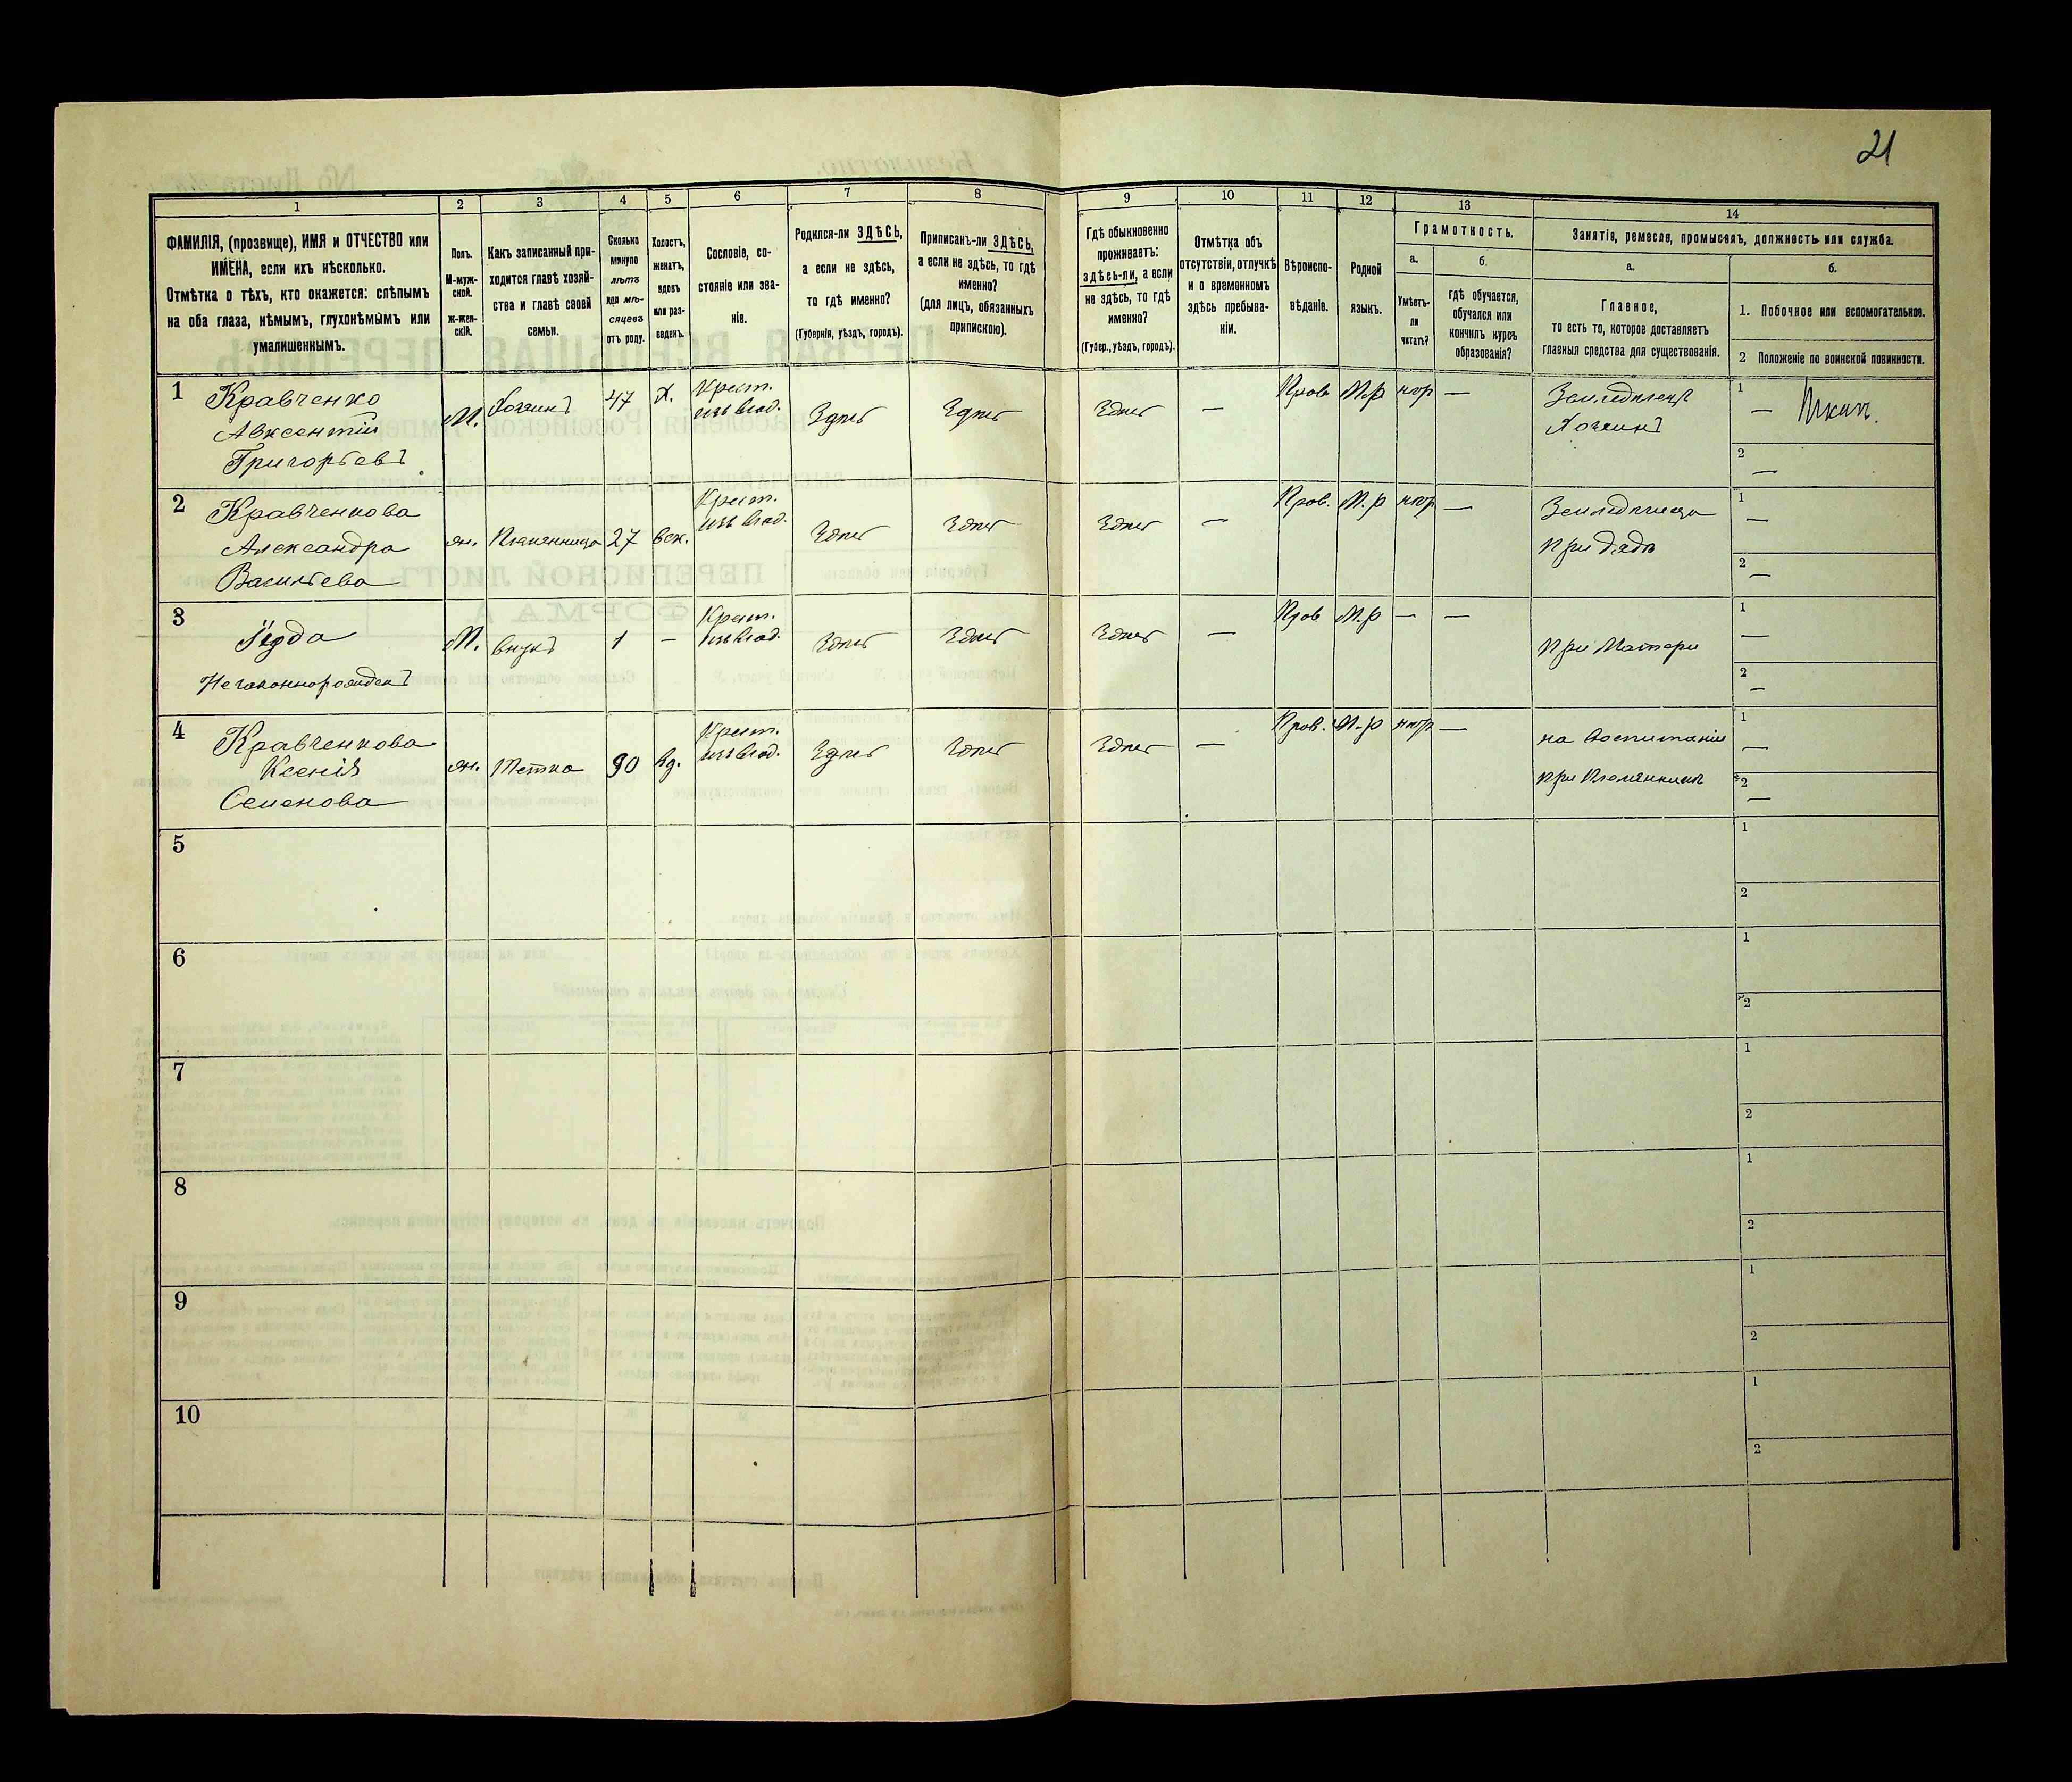 21
1 2 3 4 5 6 7 8 9 10 11 12 13 14
ФАМИЛІЯ, (прозвище), ИМЯ и ОТЧЕСТВО или
ИМЕНА, если ихъ нѣсколько.
Отмѣтка о тѣхъ, кто окажется: слѣпымъ
на оба глаза, нѣмымъ, глухонѣмымъ или
умалишеннымъ.
Полъ.
М-муж-
ской.
ж-жен-
скій.
Какъ записанный при-
ходится главѣ хозяй-
ства и главѣ своей
семьи.
Сколько
минуло
лѣтъ
или мѣ-
сяцевъ
отъ роду.
Холостъ,
женатъ,
вдовъ
или раз-
веденъ.
Сословіе, со-
стояніе или зва-
ніе.
Родился-ли ЗДѢСЬ,
а если не здѣсь,
то гдѣ именно?
(Губернія, уѣздъ, городъ).
Приписанъ-ли ЗДѢСЬ,
а если не здѣсь, то гдѣ
именно?
(для лицъ, обязанныхъ
припискою).
Гдѣ обыкновенно
проживаетъ:
здѣсь-ли, а если
не здѣсь, то гдѣ
именно?
(Губер., уѣздъ, городъ).
Отмѣтка объ
отсутствіи, отлучкѣ
и о временномъ
здѣсь пребыва-
ніи.
Вѣроиспо-
вѣданіе.
Родной
языкъ.
Грамотность.
а.
Умѣетъ-
ли
читать?
б.
гдѣ обучается,
обучался или
кончилъ курсъ
образованія?
Занятія, ремесло, промыселъ, должность или служба.
а.
Главное,
то есть то, которое доставляетъ
главныя средства для существованія.
б.
1. Побочное или вспомогательное.
2 Положеніе по воинской повинности.
1 Кравченко
Авксентій
Григорьевъ
М. Хозяинъ 47 Х. Крест.
изъ влад. Здѣсь Здѣсь Здѣсь — Прав М.р нѣтъ —
Земледѣлецъ
Хозяинъ
1 —
2 —
2 Кравченкова
Александра
Васильева
ж. Племянница 27 Крест.
изъ влад. Здѣсь Здѣсь Здѣсь — Прав. М.р нѣтъ —
при дядѣ
1 —
2 —
3
Незаконнорожден
М. внукъ 1 — Крест.
изъ влад. Здѣсь Здѣсь Здѣсь — Прав М.р — —
при Матери
1 —
2 —
4 Кравченкова
Ксенія
Семенова
ж. Тетка 90 Вд. Крест.
изъ влад. Здѣсь Здѣсь Здѣсь — Прав. М.р нѣтъ —
на воспитаніи
при Племянникѣ
1 —
2 —
5
1
2
6
1
2
7
1
2
8
1
2
9
1
2
10
1
2